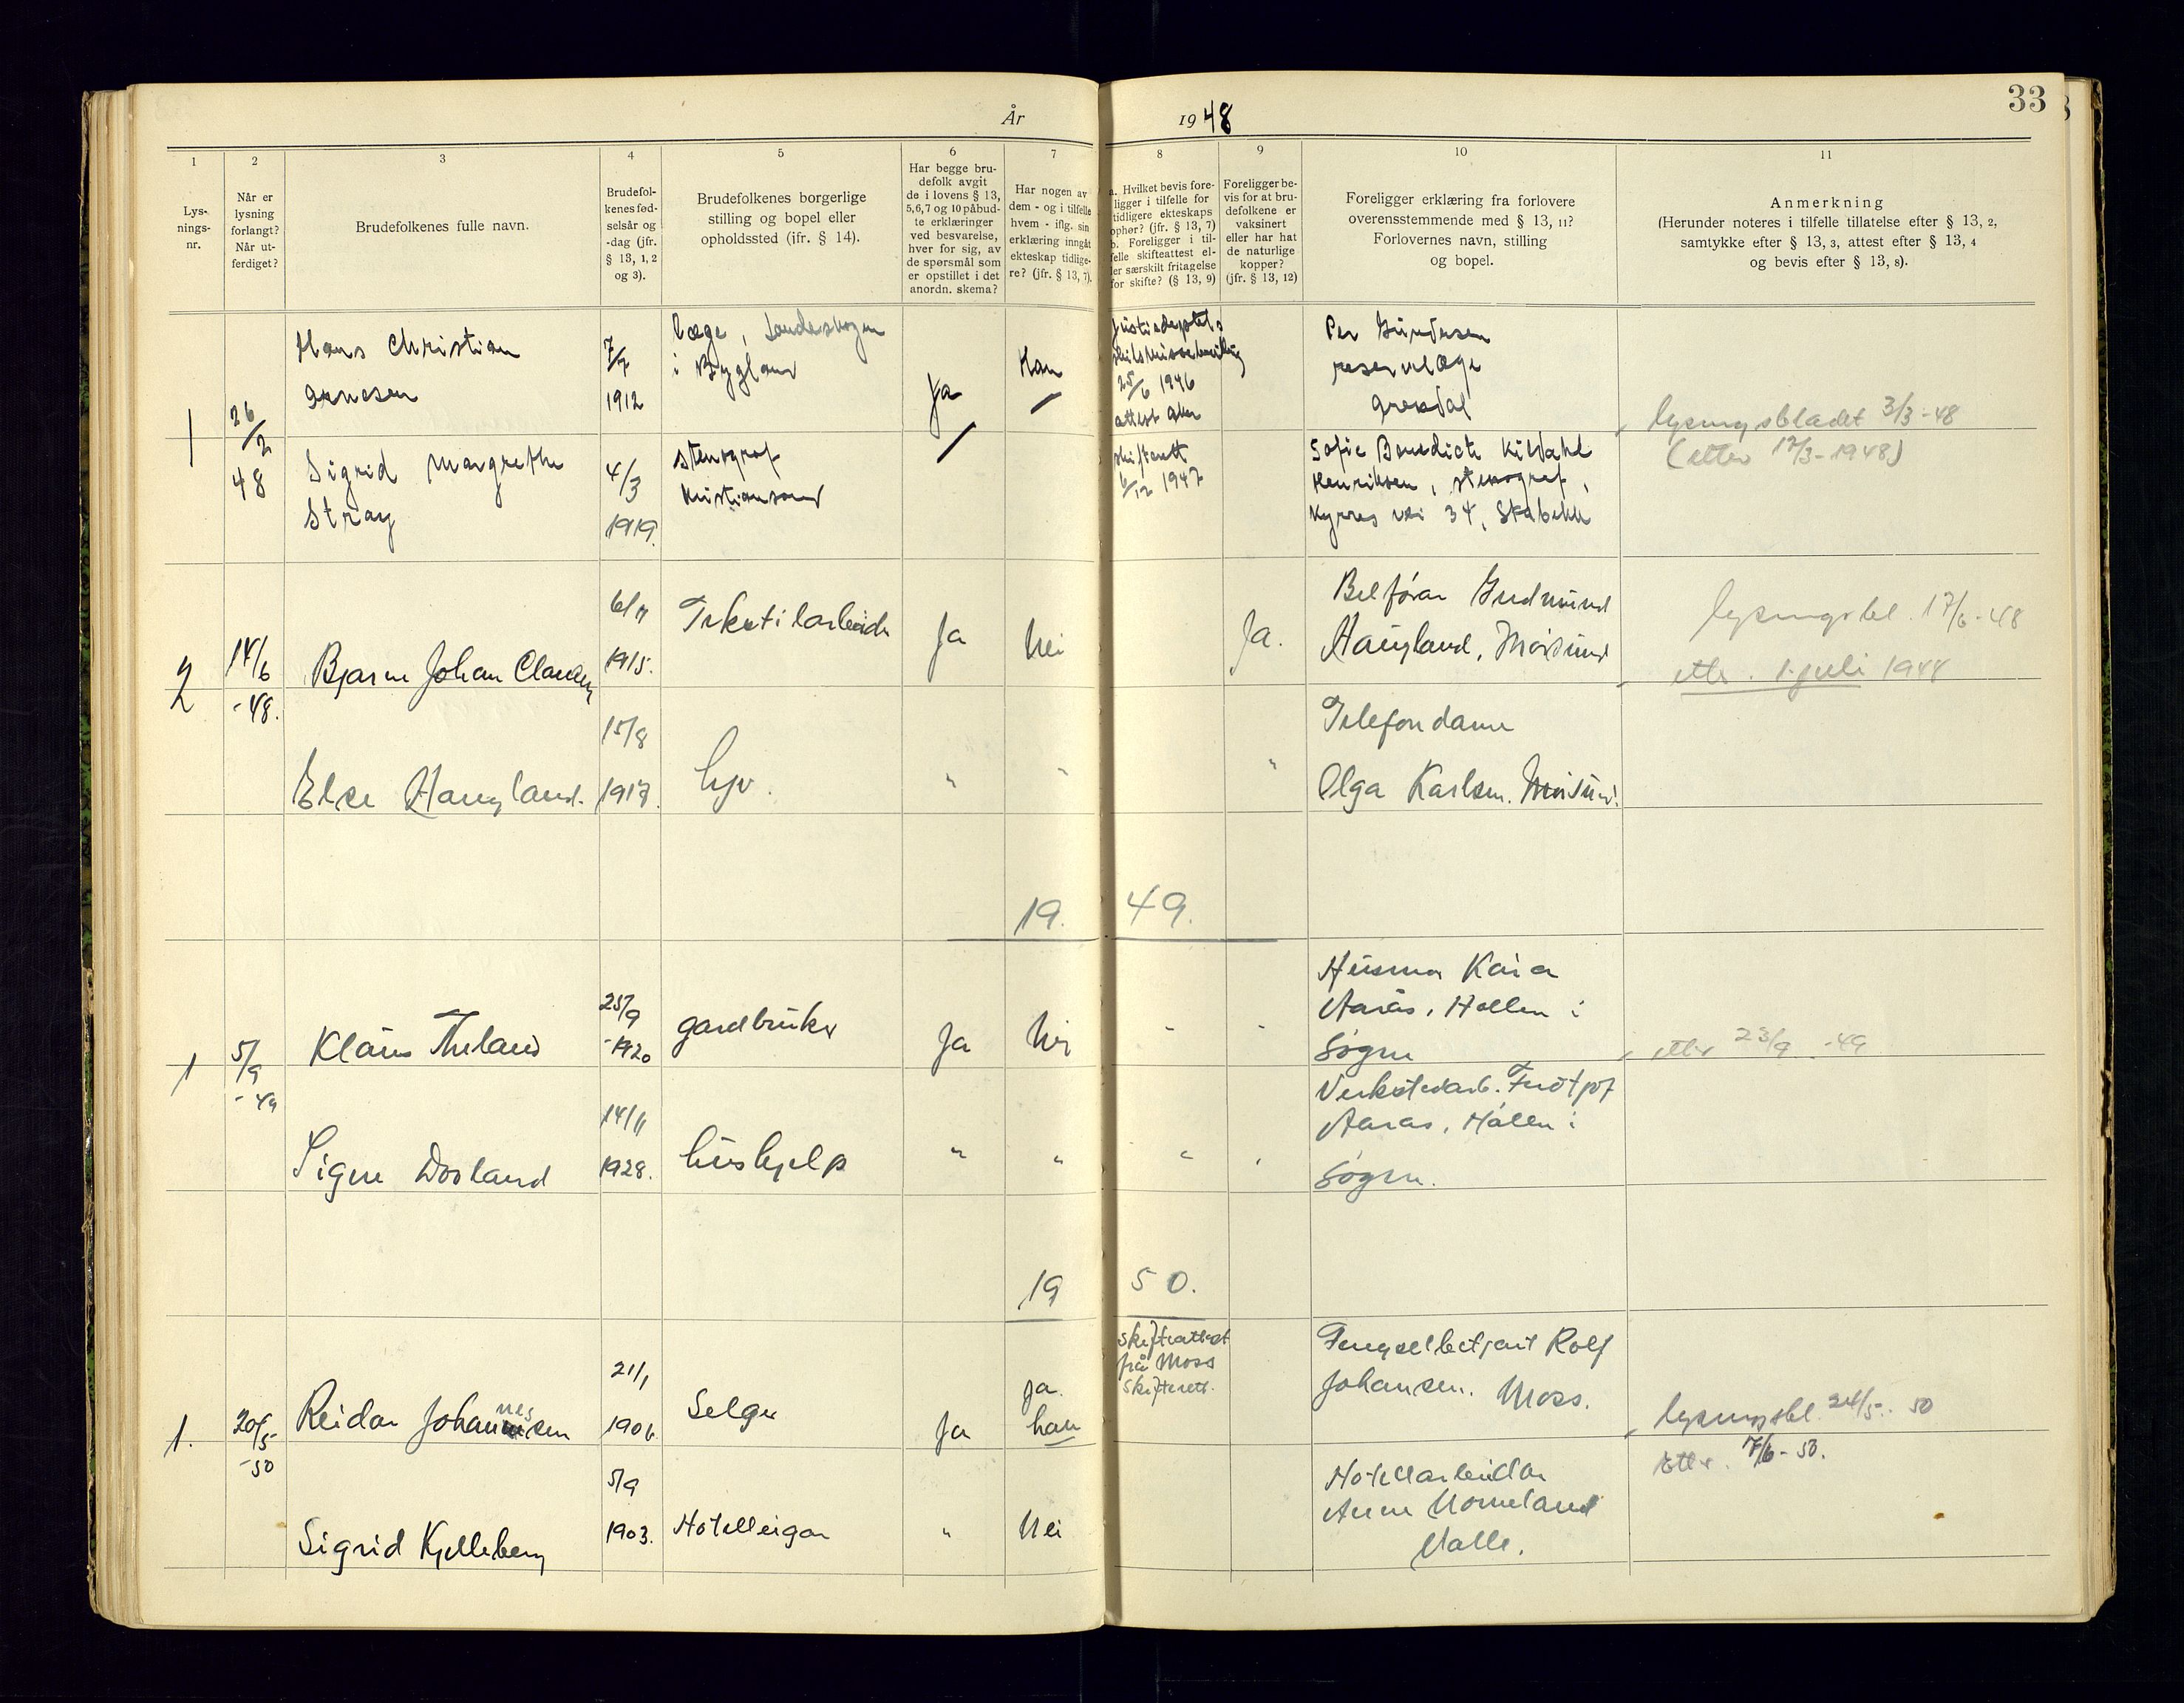 33
År 1948
1
2
3
4
5
6
7
8
9
10
11
Lys-
nings-
nr.
Når er
lysning
forlangt?
Når ut-
ferdiget?
Brudefolkenes fulle navn.
Brudefol-
kenes fød-
selsår og
-dag (jfr.
§ 13, 1, 2
og 3).
Brudefolkenes borgerlige
stilling og bopel eller
opholdssted (ifr. § 14).
Har begge bru-
defolk avgit
de i lovens § 13,
5,6,7 og 10 påbud-
te erklæringer
ved besvarelse,
hver for sig, av
de spørsmål som
er opstillet i det
anordn. skema?
Har nogen av
dem - og i tilfelle
hvem - iflg. sin
erklæring inngåt
ekteskap tidlige-
re? (jfr. § 13, 7).
a. Hvilket bevis fore-
ligger i tilfelle for
tidligere ekteskaps
ophør? (jfr. § 13, 7)
b. Foreligger i til-
felle skifteattest el-
ler særskilt fritagelse
for skifte? (§ 13, 9)
Foreligger be-
vis for at bru-
defolkene er
vaksinert
eller har hat
de naturlige
kopper?
(jfr. § 13, 12)
Foreligger erklæring fra forlovere
overensstemmende med § 13, 11?
Forlovernes navn, stilling
og bopel.
Anmerkning
(Herunder noteres i tilfelle tillatelse efter § 13, 2,
samtykke efter § 13, 3, attest efter § 13, 4
og bevis efter § 13, 8).
1
26/2
48
Hans Christian
Arnesen
7/7
1912
læge,
i Bygland
Ja
Han
25/6 1946
attest
Per
reservelæge
lysningsbladet 3/3-48
(etter 17/3-1948)
Sigrid Margrethe
Stray
4/3
1919.
stenograf
Kristiansand
skifterett
6/12 1947
Sofie Benedicte Kildahl
Henriksen, stenograf,
vei 34, Stabekk
2
14/6
-48.
Bjarne Johan
1915.
Tekstilarbeider
Ja
Nei
Ja.
Gudmund
Haugland, Moisund
lysningsbl. 17/6-48
etter 1. juli 1948
Else Haugland.
15/8
1917.
hjv.
"
"
"
Telefondame
Olga Karlsen. Moisund.
19 49.
1
5/9
-49
Klaus Theland
25/9
-1920
gardbruker
Ja
Nei
-
-
Husmor Kaia
Aarås, Høllen i
Søgne
etter 23/9 -49
Signe Dosland
14/11
1928.
hushjelp
"
"
"
"
Verkstedarb. Fridtjof
Aarås, Høllen i
Søgne.
19 50.
1.
20/5
-50
Reidar Johannessen
21/1
1906
Selger
Ja
Ja.
han
Skifteattest
frå Moss
Skifterett.
Fengselbetjent Rolf
Johansen. Moss.
lysningsbl. 24/5-50
Etter 7/6-50.
Sigrid Kjelleberg
5/9
1903.
Hotelleigar
"
Nei
Hotellarbeidar
Anne Homeland
Valle.